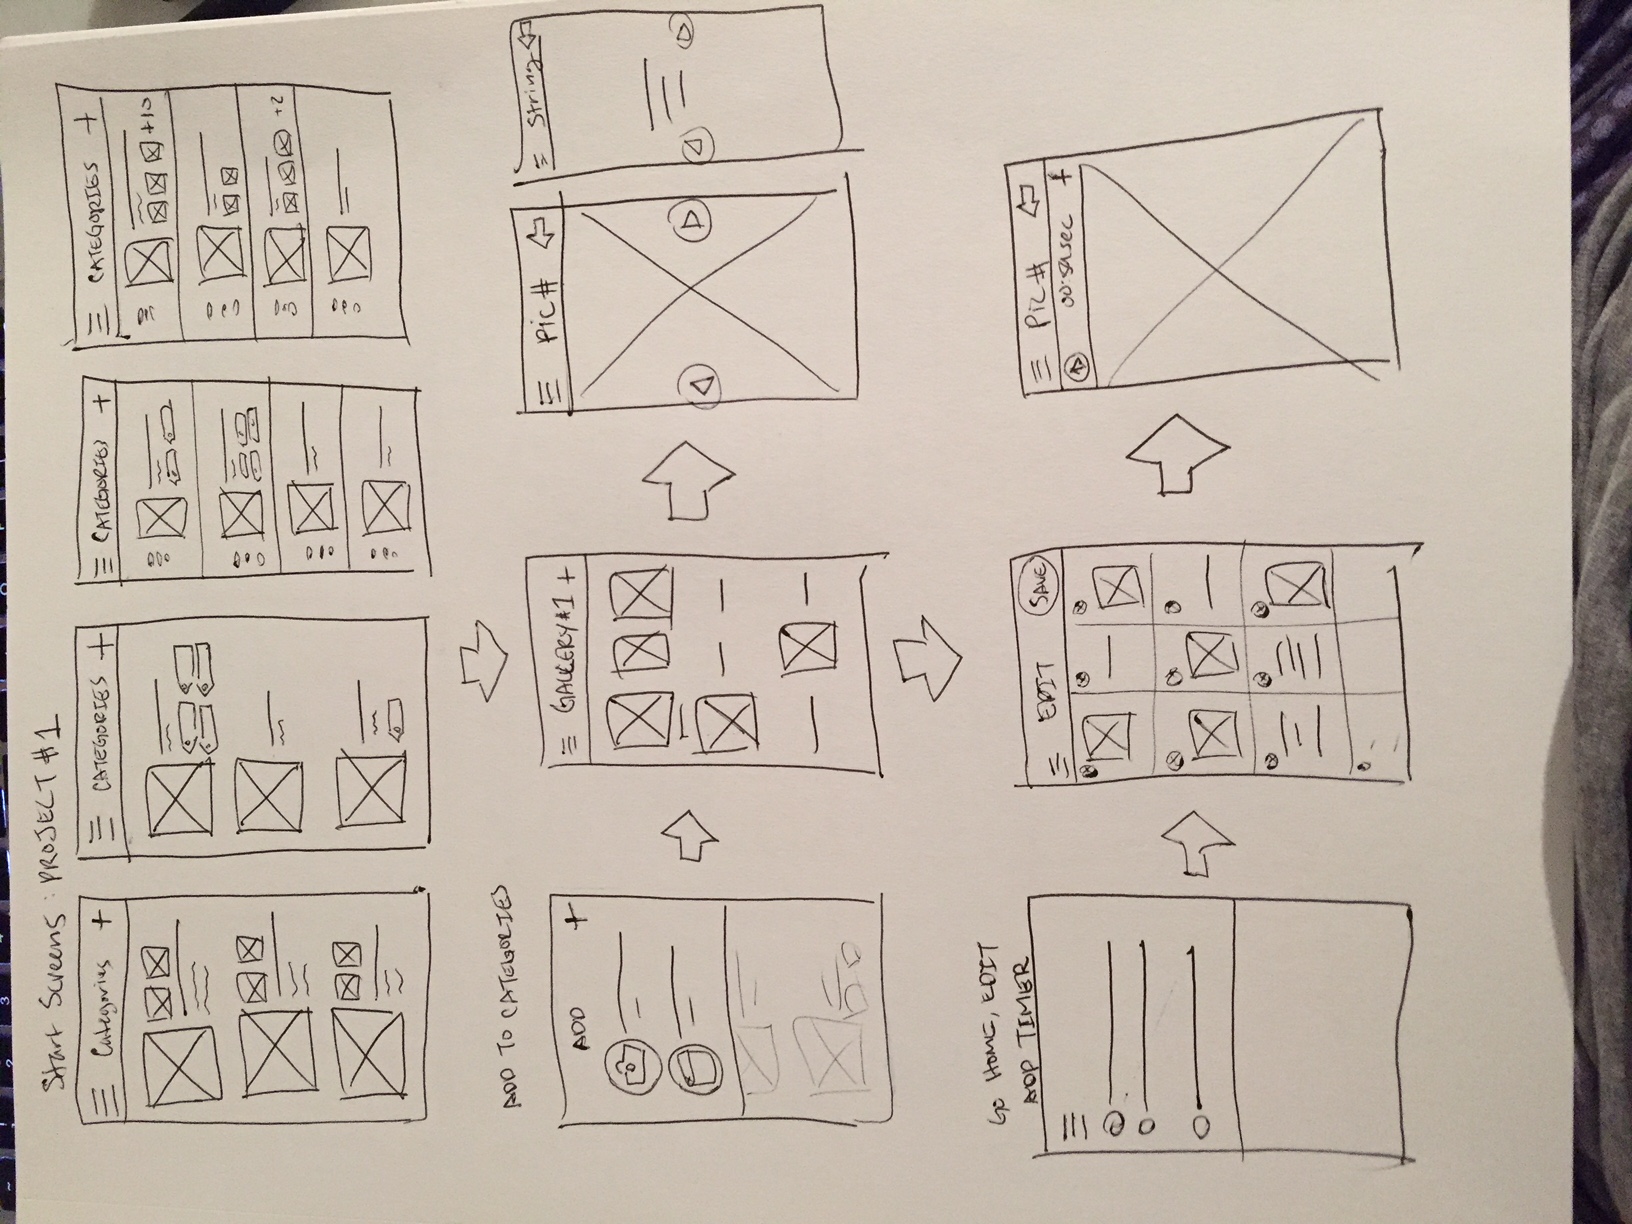 Start Screens: PROJECT #1
Categories +
CATEGORIES +
CATEGORIES +
CATEGORIES +
+10
+2
ADD TO CATEGORIES
ADD +
GALLERY #1 +
Pic #
String
GO HOME, EDIT
ADD TIMER
EDIT
SAVE
Pic #
00:59sec +